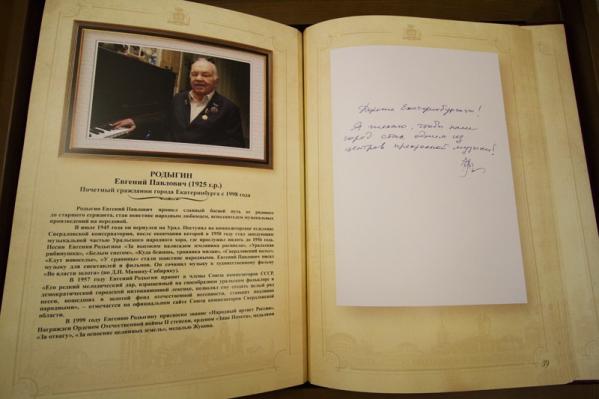 РОДЫГИН
Евгений Павлович (1925 г.р.)
Почетный гражданин города Екатеринбурга с 1998 года
Родыгин Евгений Павлович прошел славный боевой путь от рядового
до старшего сержанта, став поистине народным любимцем, исполнителем музыкальных
произведений на передовой.
В июле 1945 года он вернулся на Урал. Поступил на композиторское отделение
Свердловской консерватории, после окончания которой в 1950 году стал заведующим
музыкальной частью Уральского народного хора, где прослужил вплоть до 1956 года.
Песни Евгения Родыгина «За высоким палисадом
рябинушка», «Белым снегом», «Куда бежишь, тропинка милая», «Свердловский вальс»,
«Едут новоселы», «У границы» стали поистине народными. Евгений Павлович писал
музыку для спектаклей и фильмов. Он сочинил музыку к художественному фильму
«Во власти золота» (по Д.Н. Мамину-Сибиряку).
В 1957 году Евгений Родыгин принят в члены Союза композиторов СССР.
«Его редкий мелодический дар, взращенный на своеобразии уральского фольклора и
демократической городской интонационной лексике, позволил ему создать целый ряд
песен, вошедших в золотой фонд отечественной песенности, ставших подлинно
народными», – отмечается на официальном сайте Союза композиторов Свердловской
области.
В 1999 году Евгению Родыгину присвоено звание «Народный артист России».
Награжден Орденом Отечественной войны II степени, орденом «Знак Почета», медалями
«За отвагу», «За освоение целинных земель», медалью Жукова.
Дорогие Екатеринбуржцы!
Я желаю, чтобы наш
город стал одним из
центров прекрасной музыки!
39